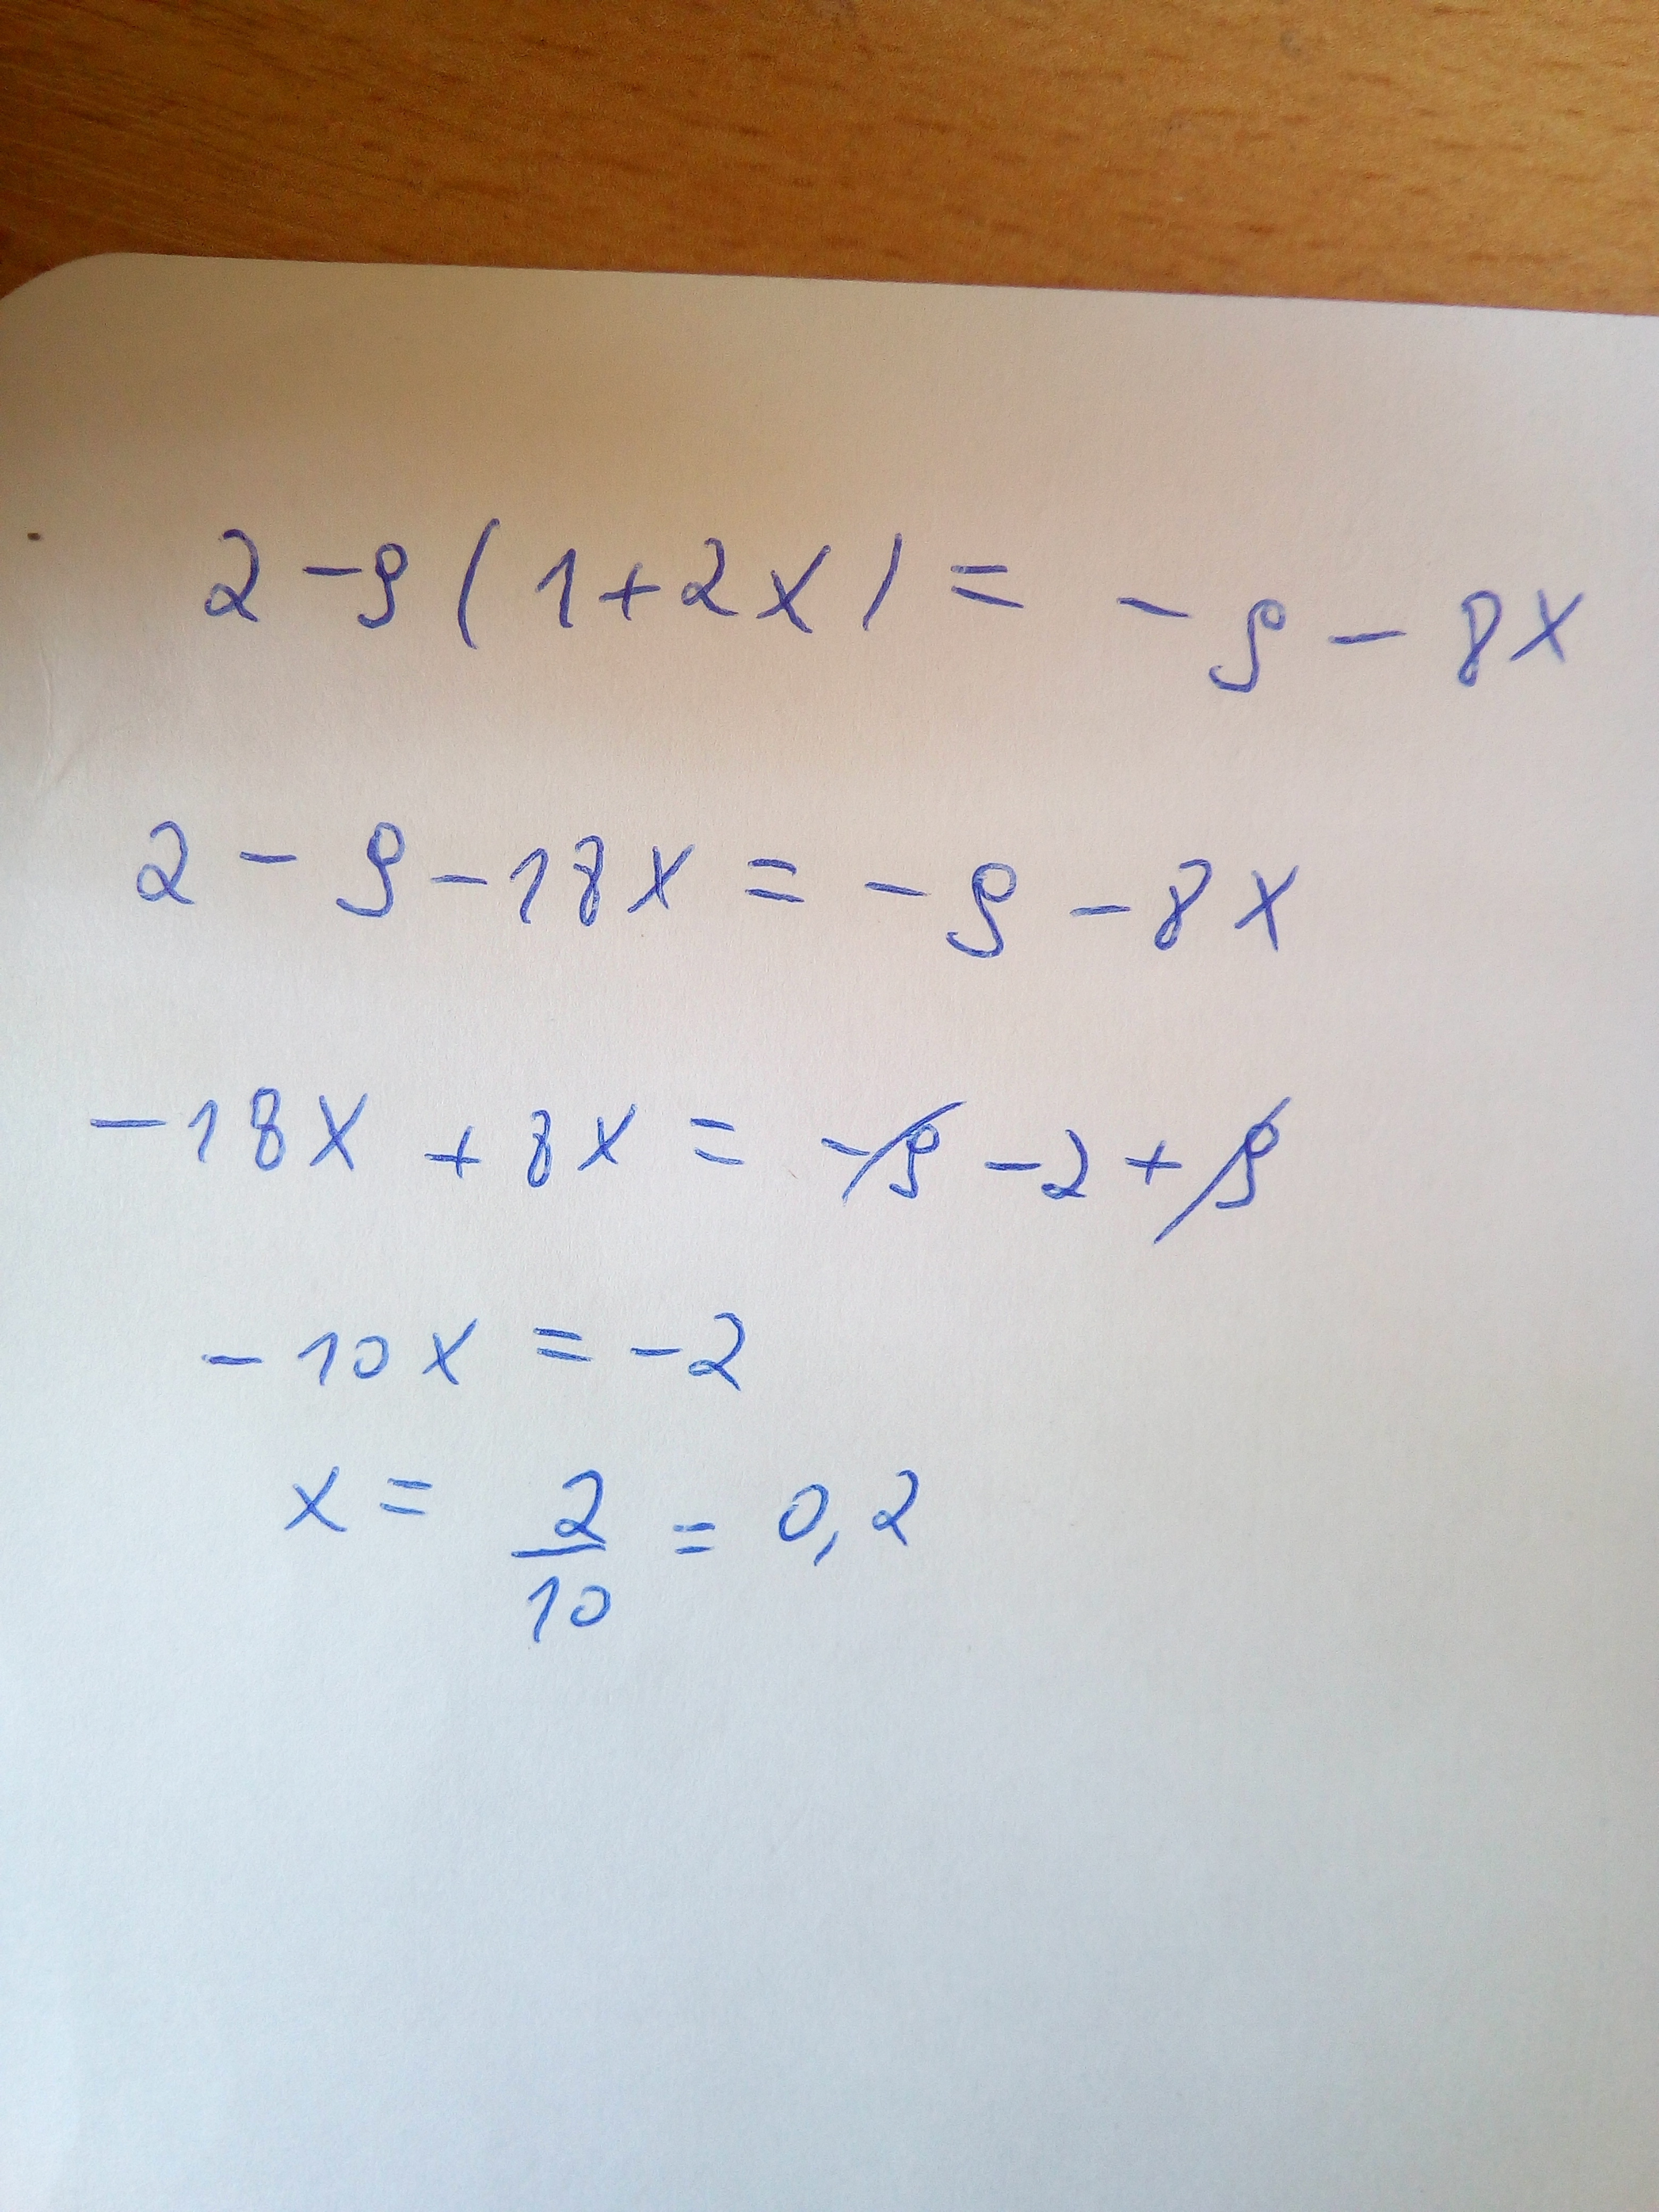 2 - 9 ( 1 + 2x ) = - 9 - 8x
2 - 9 - 18x = - 9 - 8x
- 18x + 8x = - 9 - 2 + 9
- 10x = - 2
x = 2/10 = 0,2